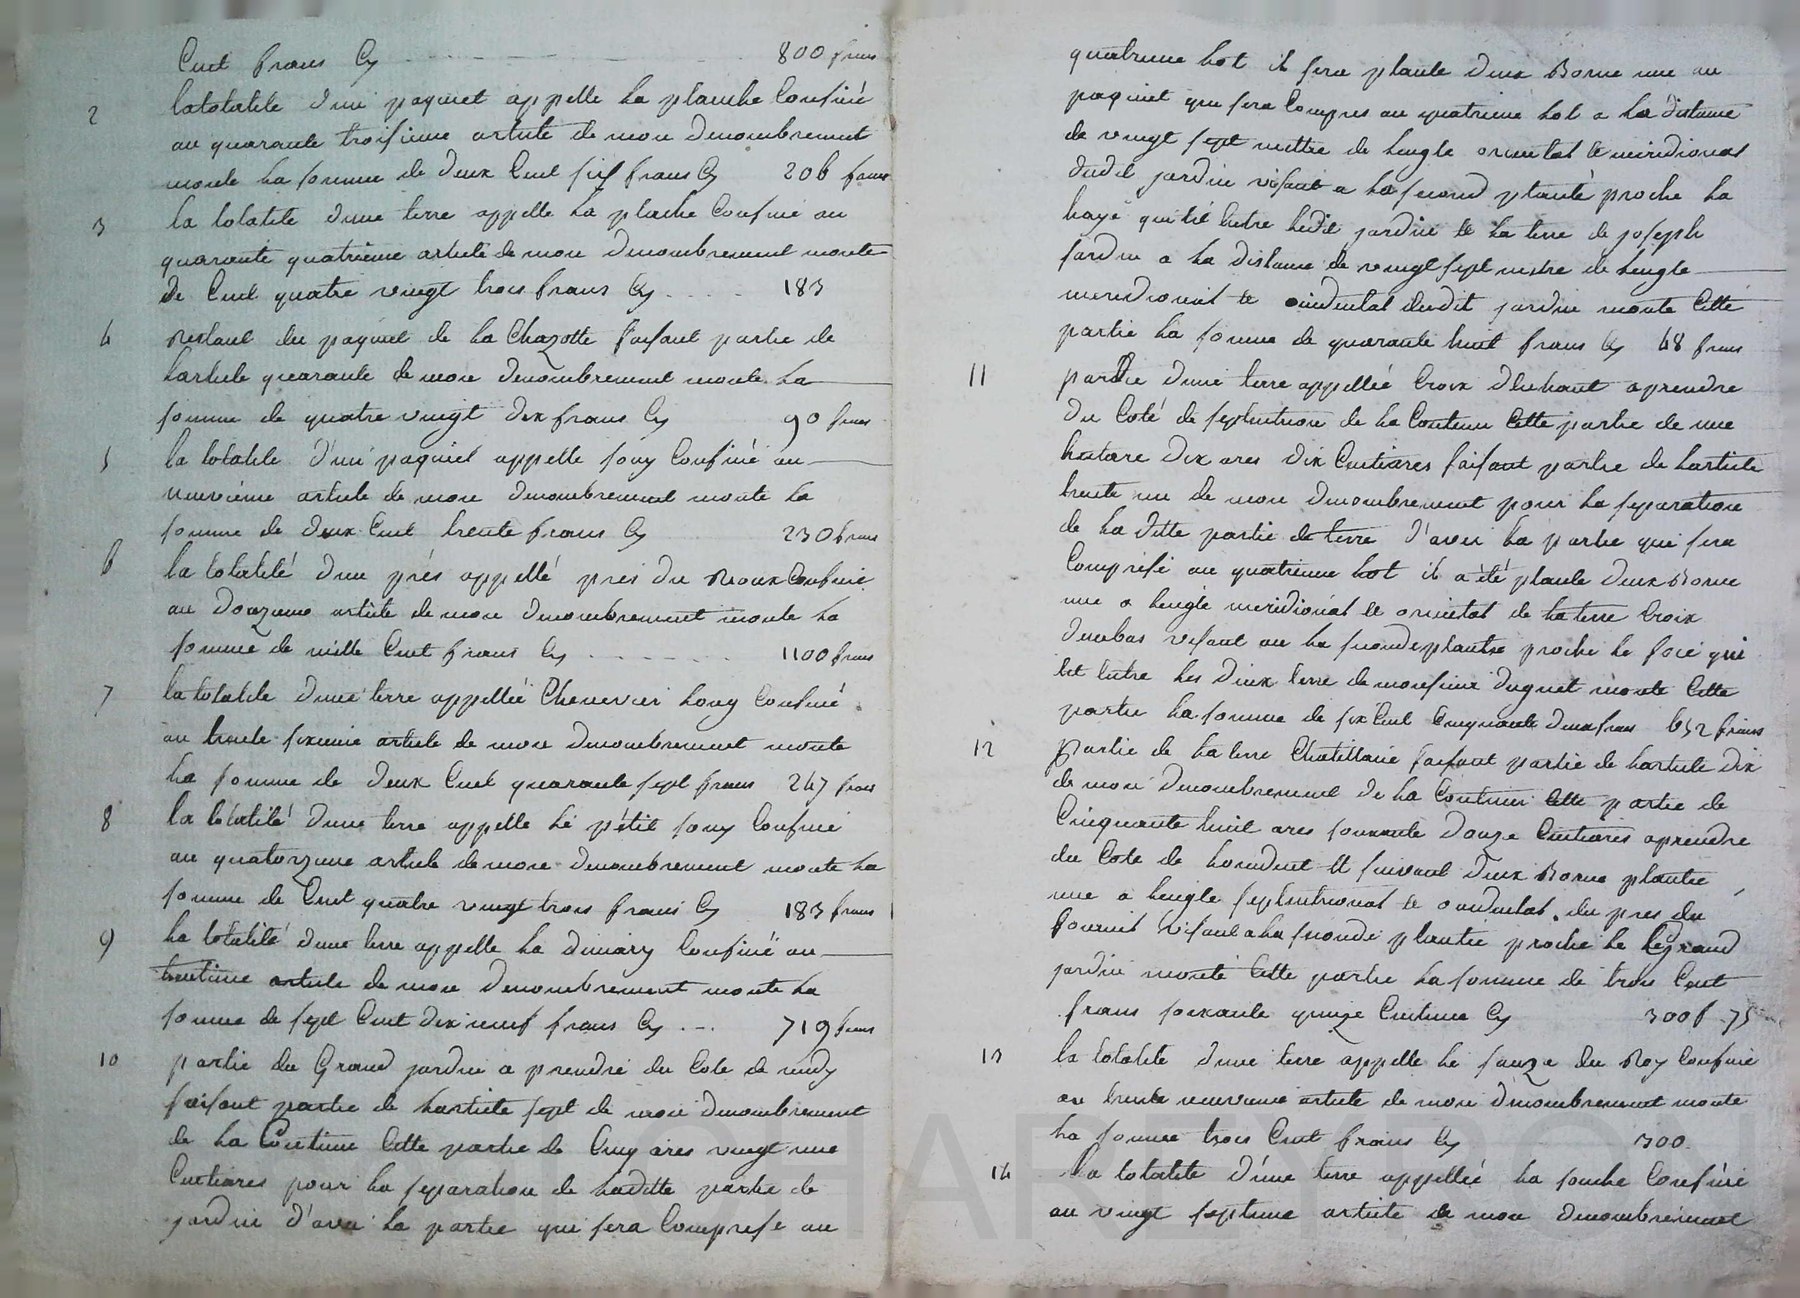 Cent frans Cy 800 frans
2 la totalité d'une paquiet appelle la planche Confiné
au quarante troisieme article de mon denombrement
monte la somme de deux Cent six frans Cy 206 frans
3 la totalite d'une terre appelle la planche Confiné au
quarante quatrieme article de mon denombrement monte
de Cent quatre vingt trois frans Cy 183
4 restant du paquiet de la Chazotte faisant partie de
larticle quarante de mon denombrement monte la
somme de quatre vingt dix frans Cy 90 frans
5 la totalite d'un paquiet appelle souy Confiné au
neuvieme article de mon denombrement monte la
somme de deux Cent trente frans Cy 230 frans
6 la totalité d'un prés appellé pres du Roux Confiné
au douzieme article de mon denombrement monte la
somme de mille Cent frans Cy 1100 frans
7 la totalite d'une terre appellée Chenevier Long Confiné
au trente sixieme article de mon denombrement monte
la somme de deux Cent quarante sept frans 247 frans
8 la totalité d'une terre appelle le pétit souy Confiné
au quatorzieme article de mon denombrement monte la
somme de Cent quatre vingt trois frans Cy 183 frans
9 la totalité d'une terre appelle la dimary Confiné au
trentieme article de mon denombrement monte la
somme de sept Cent dix neuf frans Cy 719 frans
10 partie du Grand jardin a prendre du Cote de midy
faisant partie de larticle sept de mon denombrement
de la Contenue Cette partie de Cinq ares vingt une
Centiares pour la separation de laditte partie de
jardin d'avec la partie qui sera Comprise au
quatrieme Lot il sera plante deux Borne une au
paquiet qui sera Compris au quatrieme lot a la distance
de vingt sept mettre de Lengle oriental et meridional
dudit jardin visant a la second planté proche la
haye qui lié Entre Ledit jardin et la terre de joseph
jardin a la distance de vingt sept metre de Lengle
meridional et oxidental dudit jardin monte Cette
partie la somme de quarante huit frans Cy 48 frans
11 partie d'une terre appellée Croix d'Enhaut aprendre
du Coté de septentrion de la Contenue Cette partie de une
hectare dix ares dix Centiares faisant partie de larticle
trente un de mon denombrement pour la separation
de la ditte partie de terre d'avec la partie qui sera
Comprise au quatrieme lot il a été plante deux Borne
une a Lengle meridional et oriental de la terre Croix
denbas visant au la seconde plantée proche le focé qui
Est Entre Les deux terre de monsieur duguet monte Cette
partie la somme de six Cent Cinquante deux frans 652 frans
12 partie de la terre Chatillane faisant partie de larticle dix
de mon denombrement de la Contenue Cette partie de
Cinquante huit ares soixante douze Centiares aprendre
du Cote de Loccident et suivant deux Borne plantée
une a Lengle septentrional et oxidental du pres du
visant a la seconde plantée proche Le LeGrand
jardin monte Cette partie la somme de trois Cent
frans soixante quinze Centime Cy 300 f 75
13 la totalite d'une terre appelle le sauze du Roy Confiné
au trente neuvieme article de mon denombrement monte
la somme trois Cent frans Cy 300
14 La totalite d'une terre appellée la souche Confiné
au vingt septieme article de mon denombrement
CHAREYRON